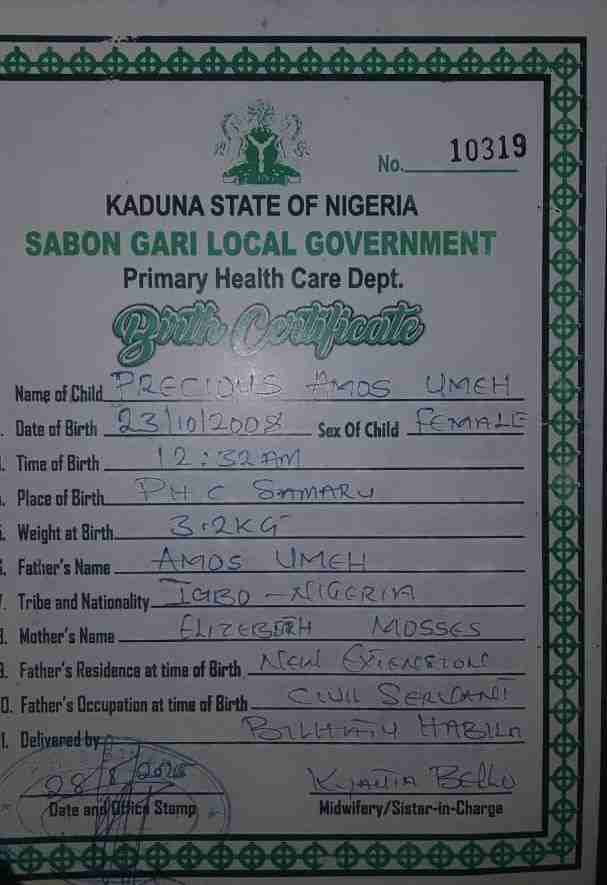 No. 10319
KADUNA STATE OF NIGERIA
SABON GARI LOCAL GOVERNMENT
Primary Health Care Dept.
Birth Certificate
Name of Child PRECIOUS AMOS UMEH
. Date of Birth 23/10/2008 Sex Of Child FEMALE
. Time of Birth 12:32AM
. Place of Birth PHC SAMARU
. Weight at Birth 3.2KG
. Father's Name AMOS UMEH
. Tribe and Nationality IGBO - NIGERIA
. Mother's Name ELIZEBETH MOSSES
. Father's Residence at time of Birth NEW EXTENSION
0. Father's Occupation at time of Birth CIVIL SERVANT
1. Delivered by HABILA
28/8/2025 BELLO
Date and Office Stamp Midwifery/Sister-in-Charge